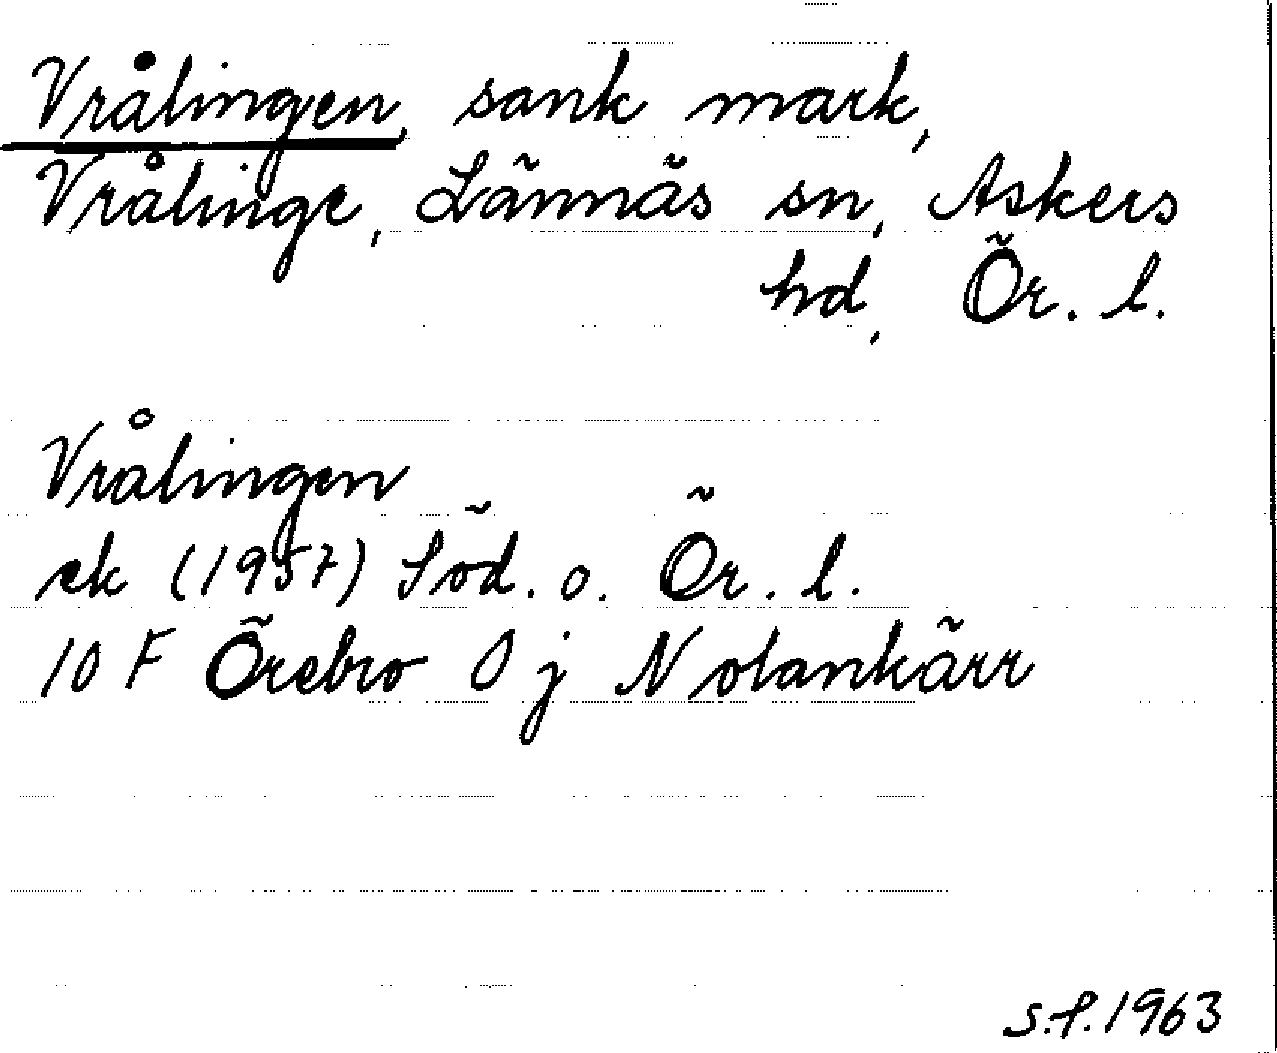 Vrålingen, sank mark,
Vrålinge, Lännäs sn, Askers
hd, Ör. l.
Vrålingen
ek (1957) Söd. o. Ör. l.
10 F Örebro 0 j N olankärr
S.F. 1963